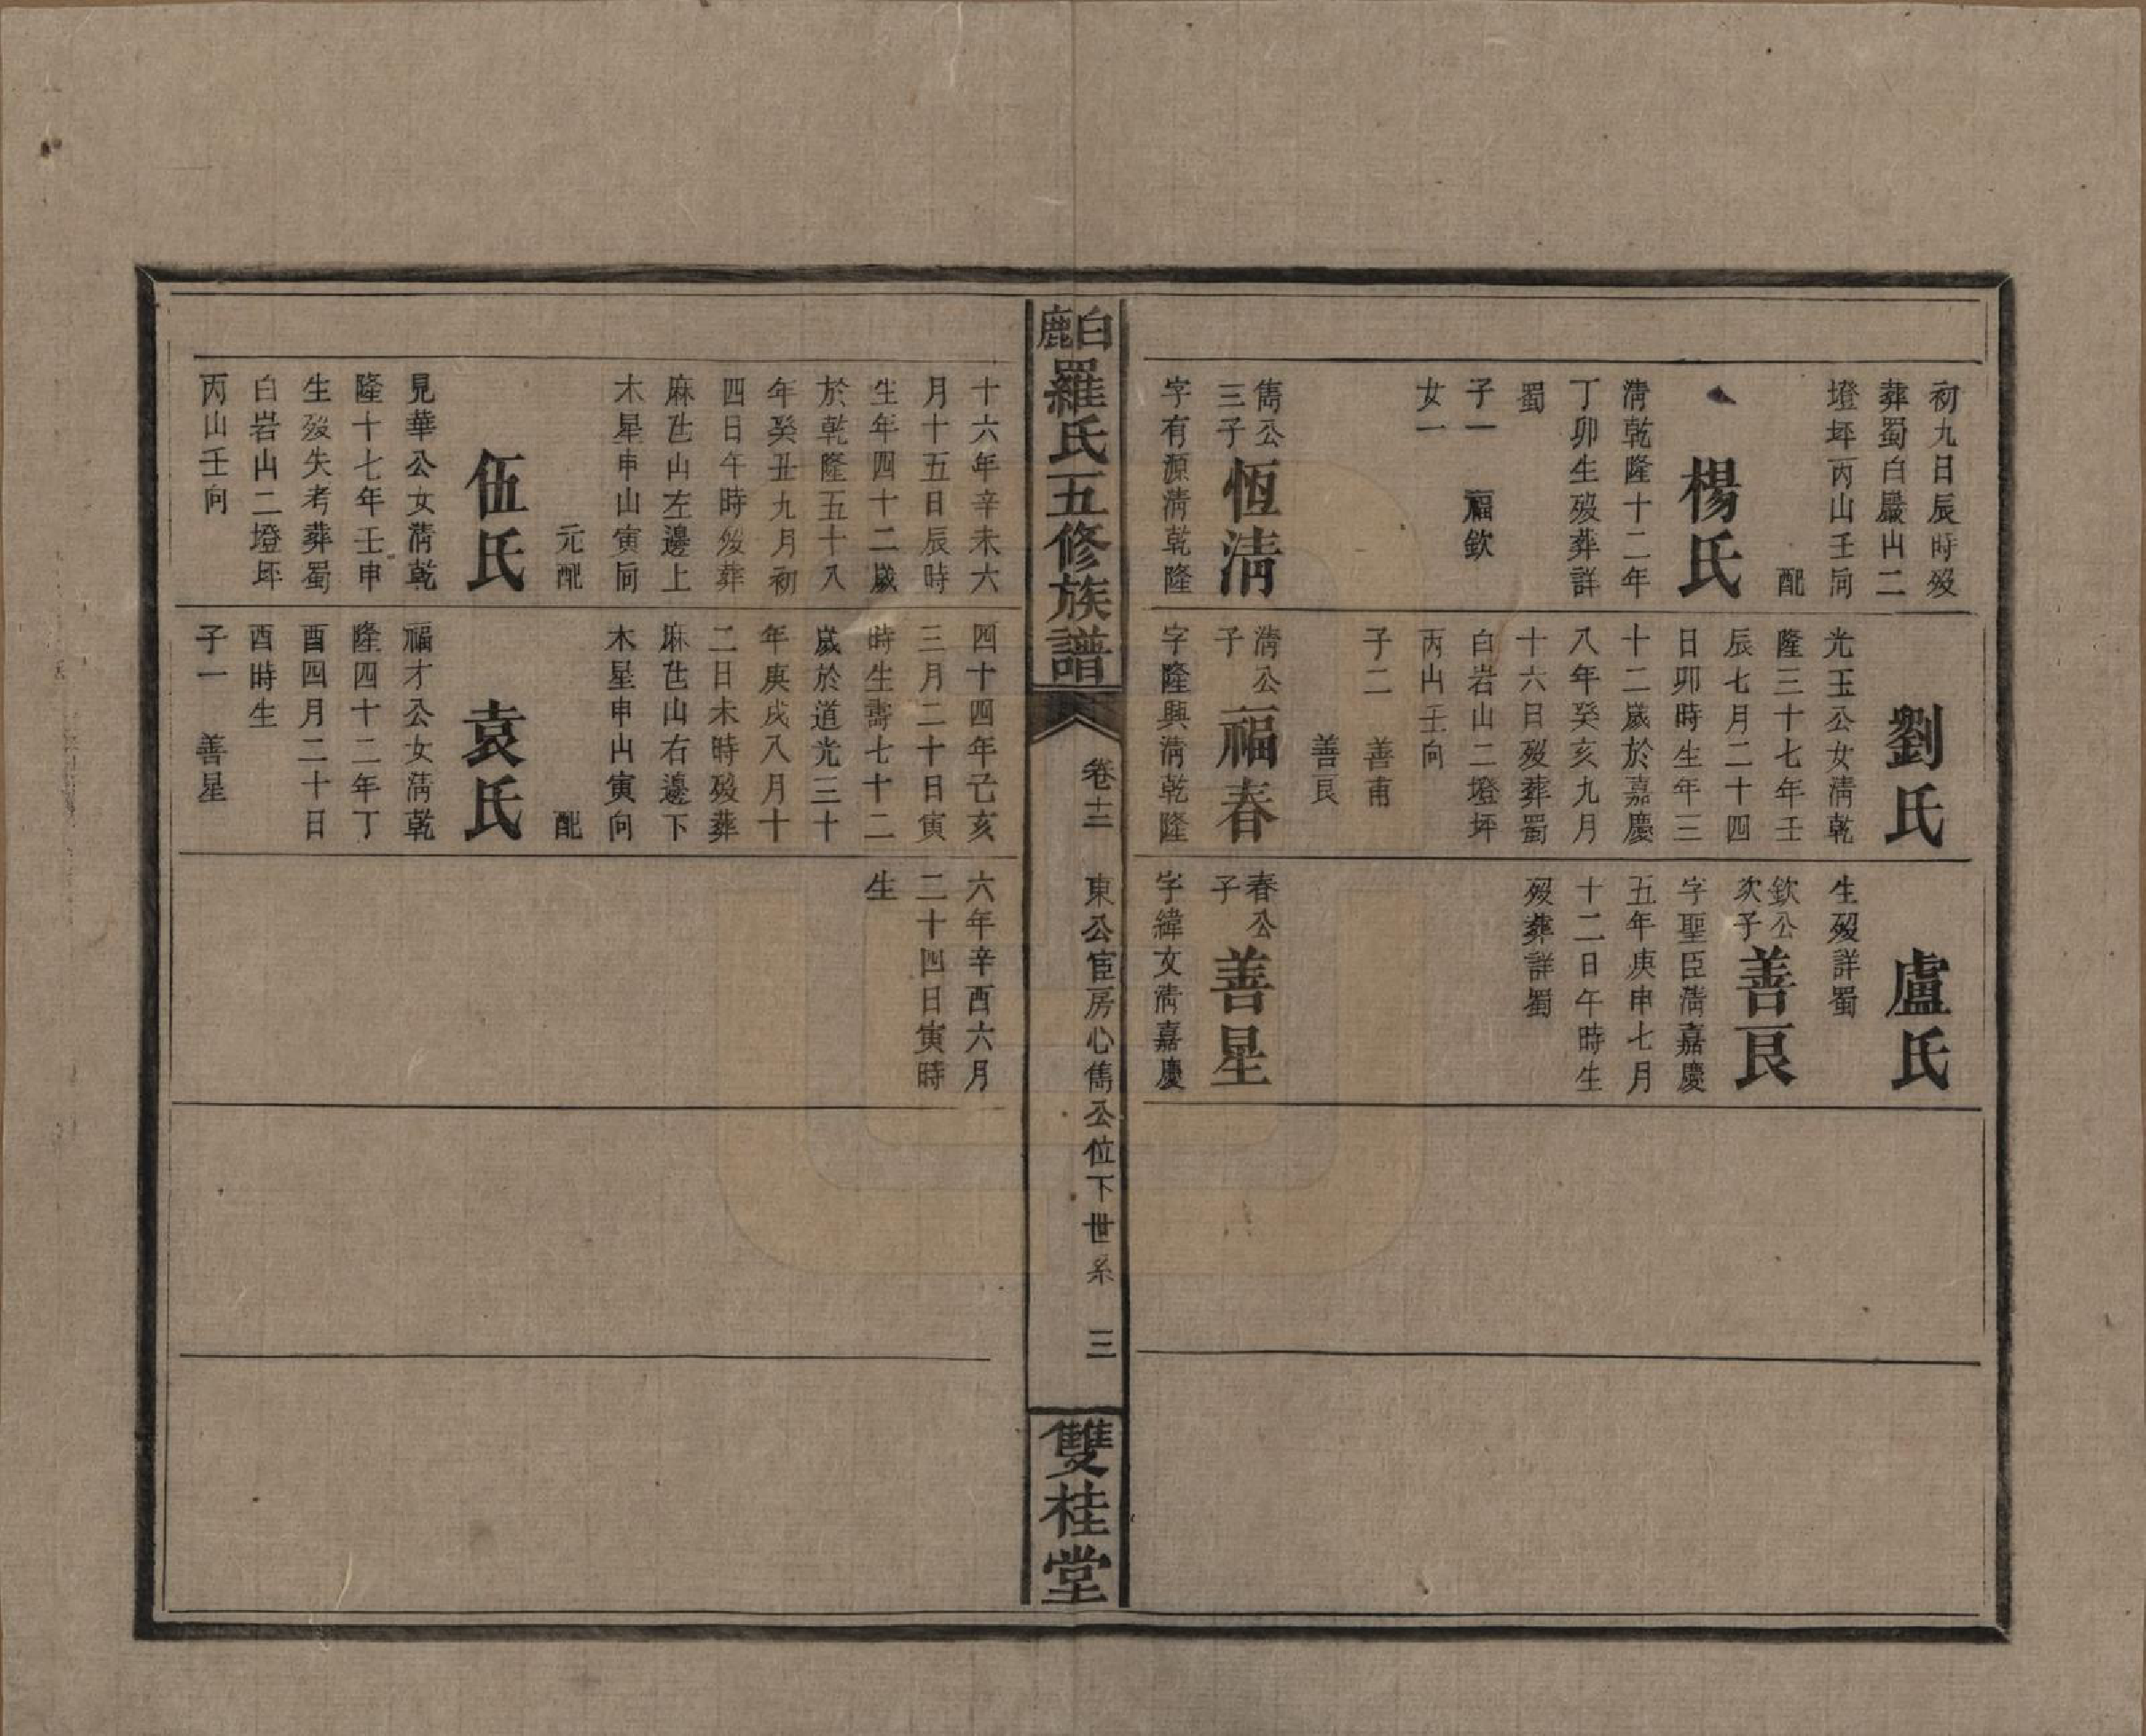 初九日辰時歿
葬蜀白巖山二
墱坪丙山壬向
配
楊氏
淸乾隆十二年
丁卯生歿葬詳
蜀
子一 福欽
女一
雋公
三子
恆淸
字有源淸乾隆
劉氏
光玉公女淸乾
隆三十七年壬
辰七月二十四
日卯時生年三
十二歲於嘉慶
八年癸亥九月
十六日歿葬蜀
白岩山二墱坪
丙山壬向
子二 善甫
善良
淸公
子
福春
字隆興淸乾隆
盧氏
生歿詳蜀
欽公
次子
善良
字聖臣淸嘉慶
五年庚申七月
十二日午時生
歿葬詳蜀
春公
子
善星
字緯文淸嘉慶
白鹿
羅氏五修族譜
卷十二
東公宦房心雋公位下世系
三
雙桂堂
十六年辛未六
月十五日辰時
生年四十二歲
於乾隆五十八
年癸丑九月初
四日午時歿葬
麻芑山左邊上
木星申山寅向
元配
伍氏
見華公女淸乾
隆十七年壬申
生歿失考葬蜀
白岩山二墱坪
丙山壬向
四十四年己亥
三月二十日寅
時生壽七十二
歲於道光三十
年庚戌八月十
二日未時歿葬
麻芑山右邊下
木星申山寅向
配
袁氏
福才公女淸乾
隆四十二年丁
酉四月二十日
酉時生
子一 善星
六年辛酉六月
二十四日寅時
生